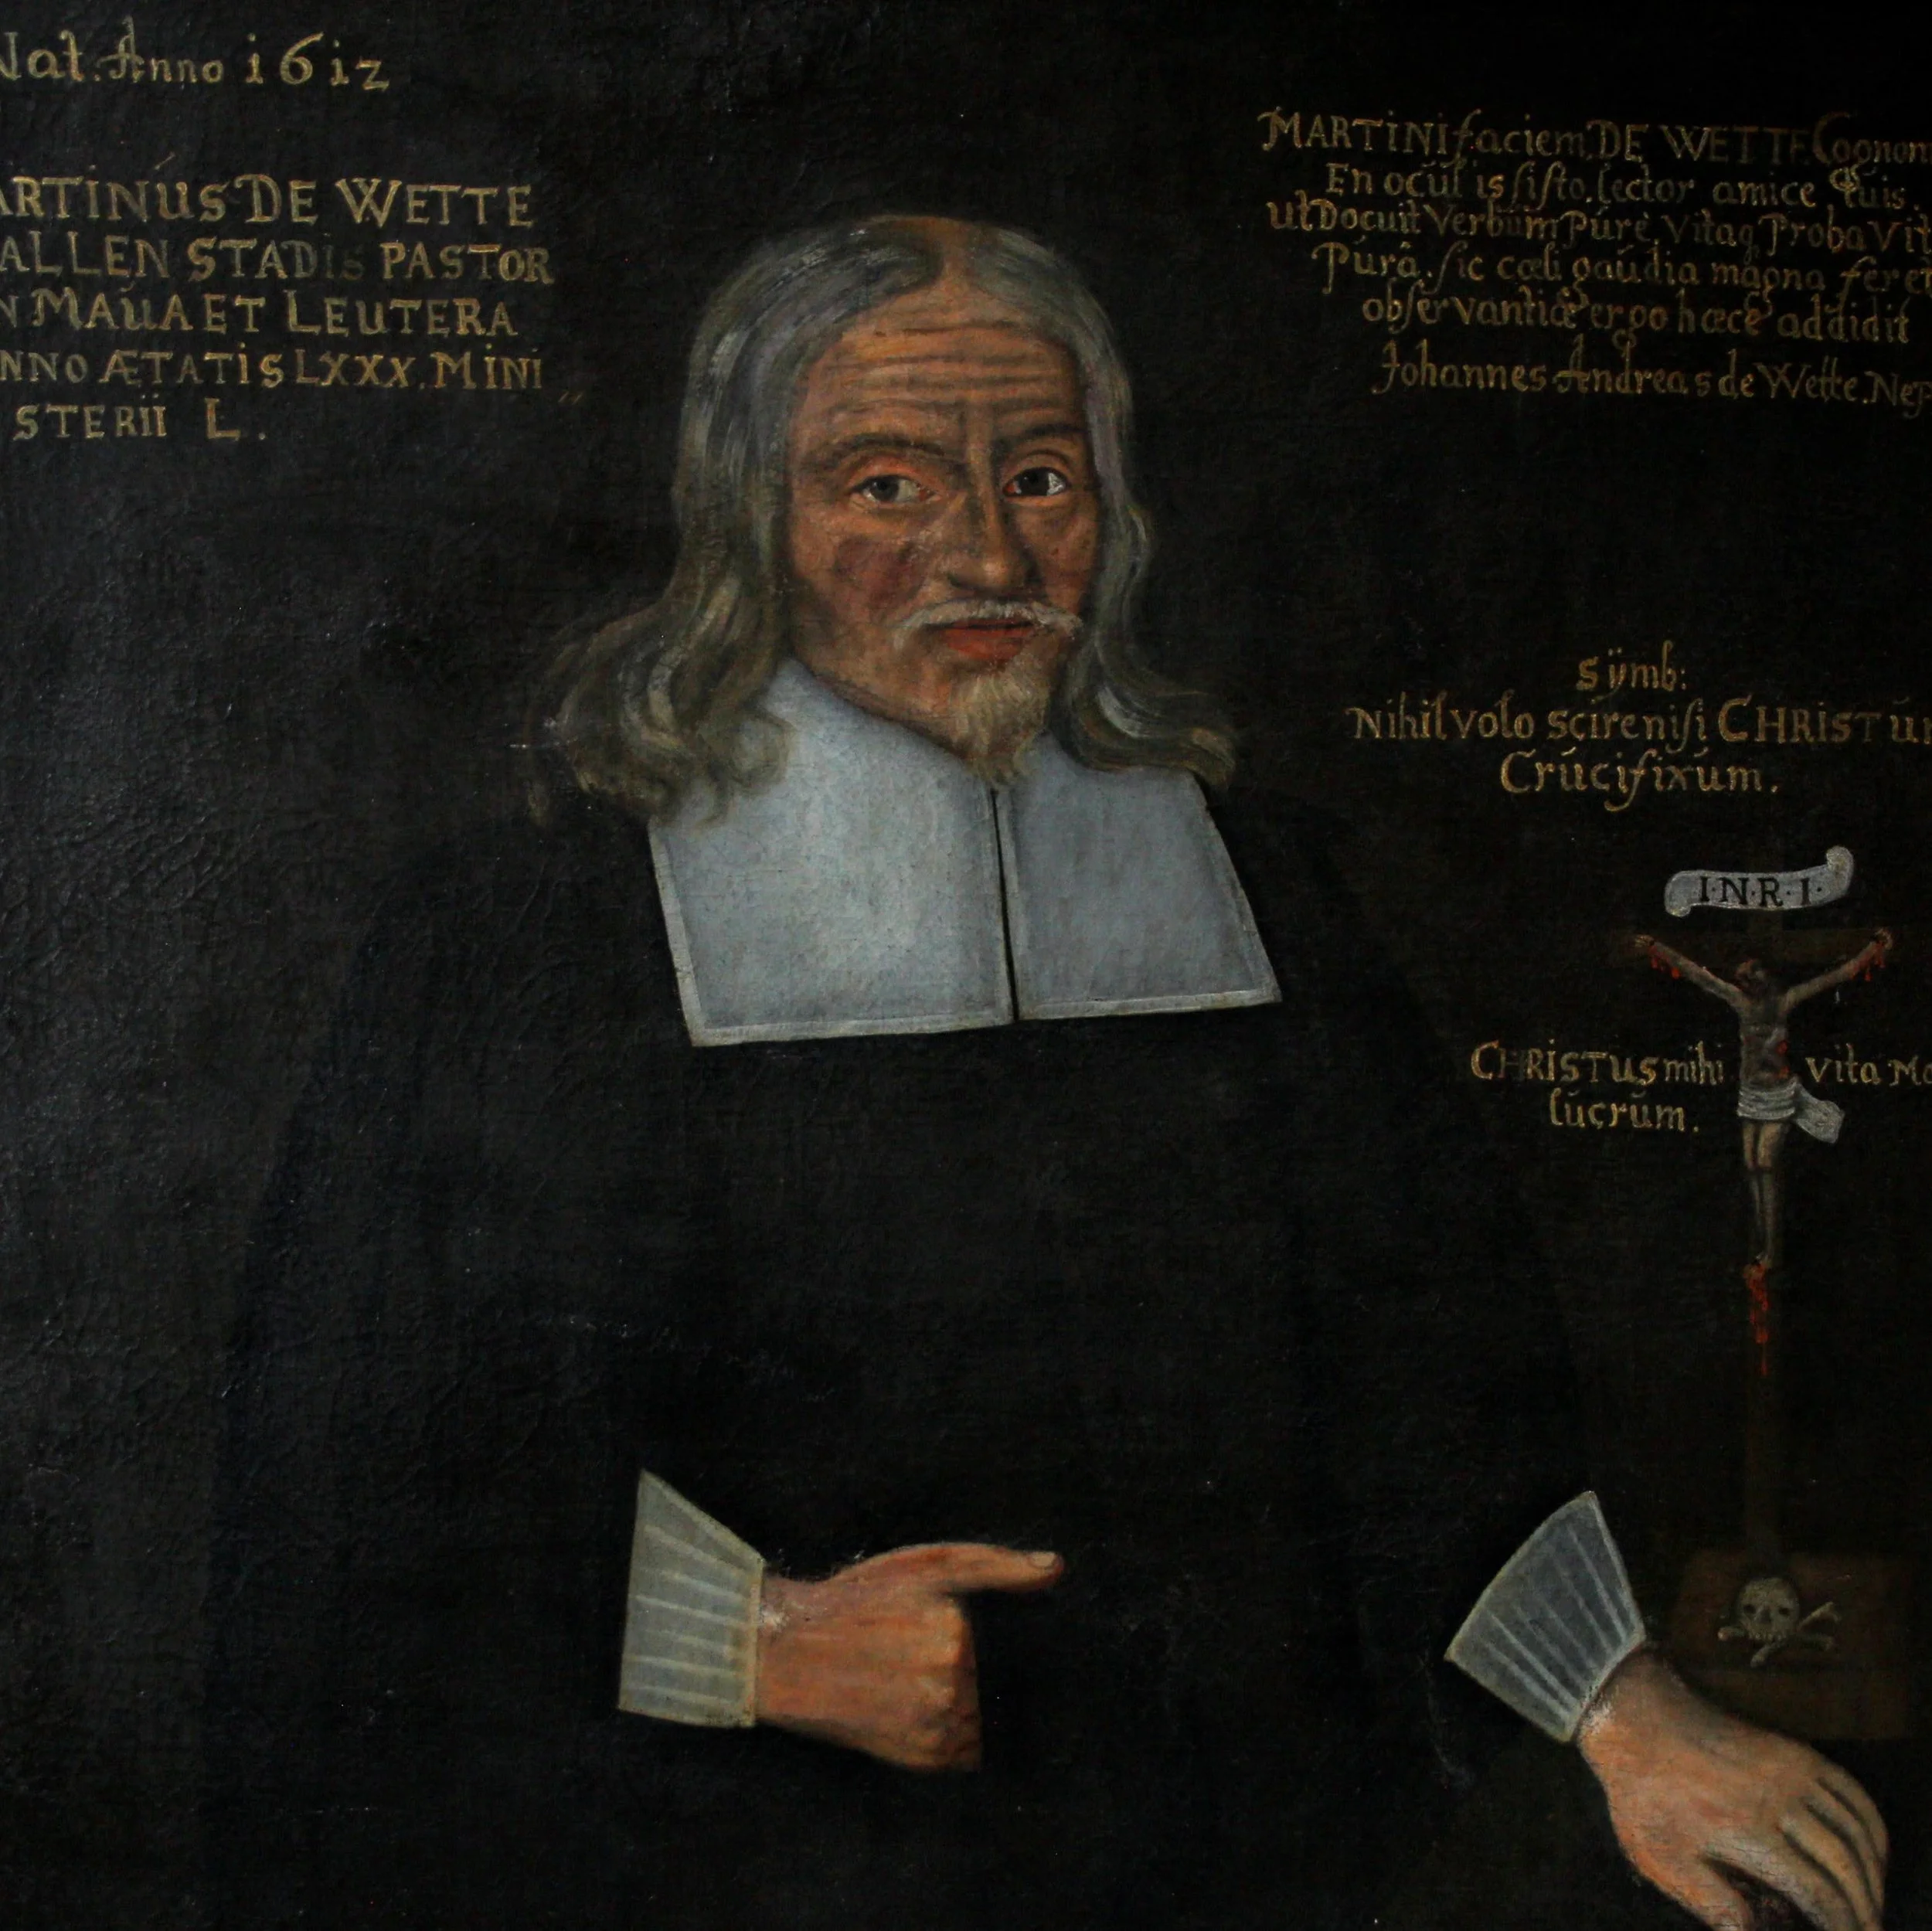 Nat. Anno 1612
ARTINUS DE WETTE
ALLEN STADIS PASTOR
N MAUA ET LEUTERA
NNO ÆTATIS LXXX. MINI
STERII L.
MARTINI faciem DE WETTE Cognom
En oculis sisto lector amice Quis.
ut Docuit Verbum Purè, Vitaq Proba Vit
Purâ. sic cœli gaudia magna feret
observantiæ ergo hæce addidit
Johannes Andreas de Wette. Nep
Sÿmb:
Nihil volo scire nisi CHRISTUM
Crucifixum.
I·N·R·I·
CHRISTUS mihi vita Mo
lucrum.